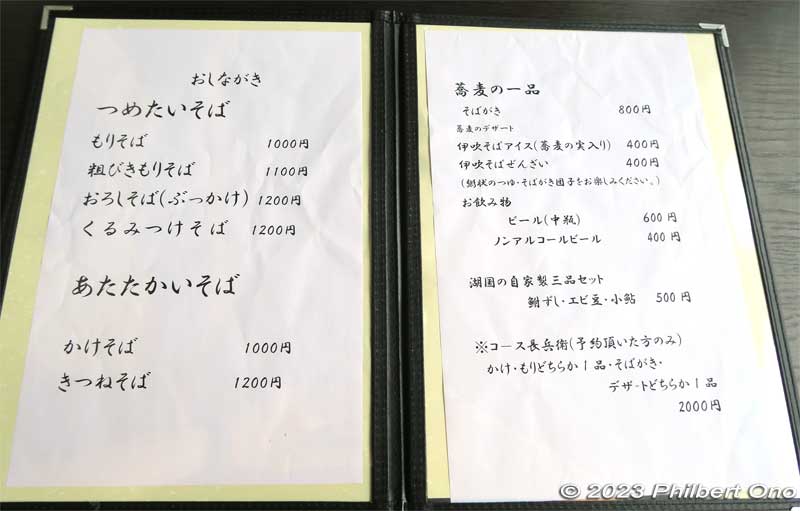 おしながき
つめたいそば
もりそば 1000円
粗びきもりそば 1100円
おろしそば(ぶっかけ) 1200円
くるみつけそば 1200円
あたたかいそば
かけそば 1000円
きつねそば 1200円
蕎麦の一品
そばがき 800円
蕎麦のデザート
伊吹そばアイス(蕎麦の実入り) 400円
伊吹そばぜんざい 400円
(餡状のつゆ・そばがき団子をお楽しみください。)
お飲み物
ビール(中瓶) 600円
ノンアルコールビール 400円
湖国の自家製三品セット
鮒ずし・エビ豆・小鮎 500円
※コース長兵衛(予約頂いた方のみ)
かけ・もりどちらか1品・そばがき・
デザートどちらか1品
2000円
© 2023 Philbert Ono